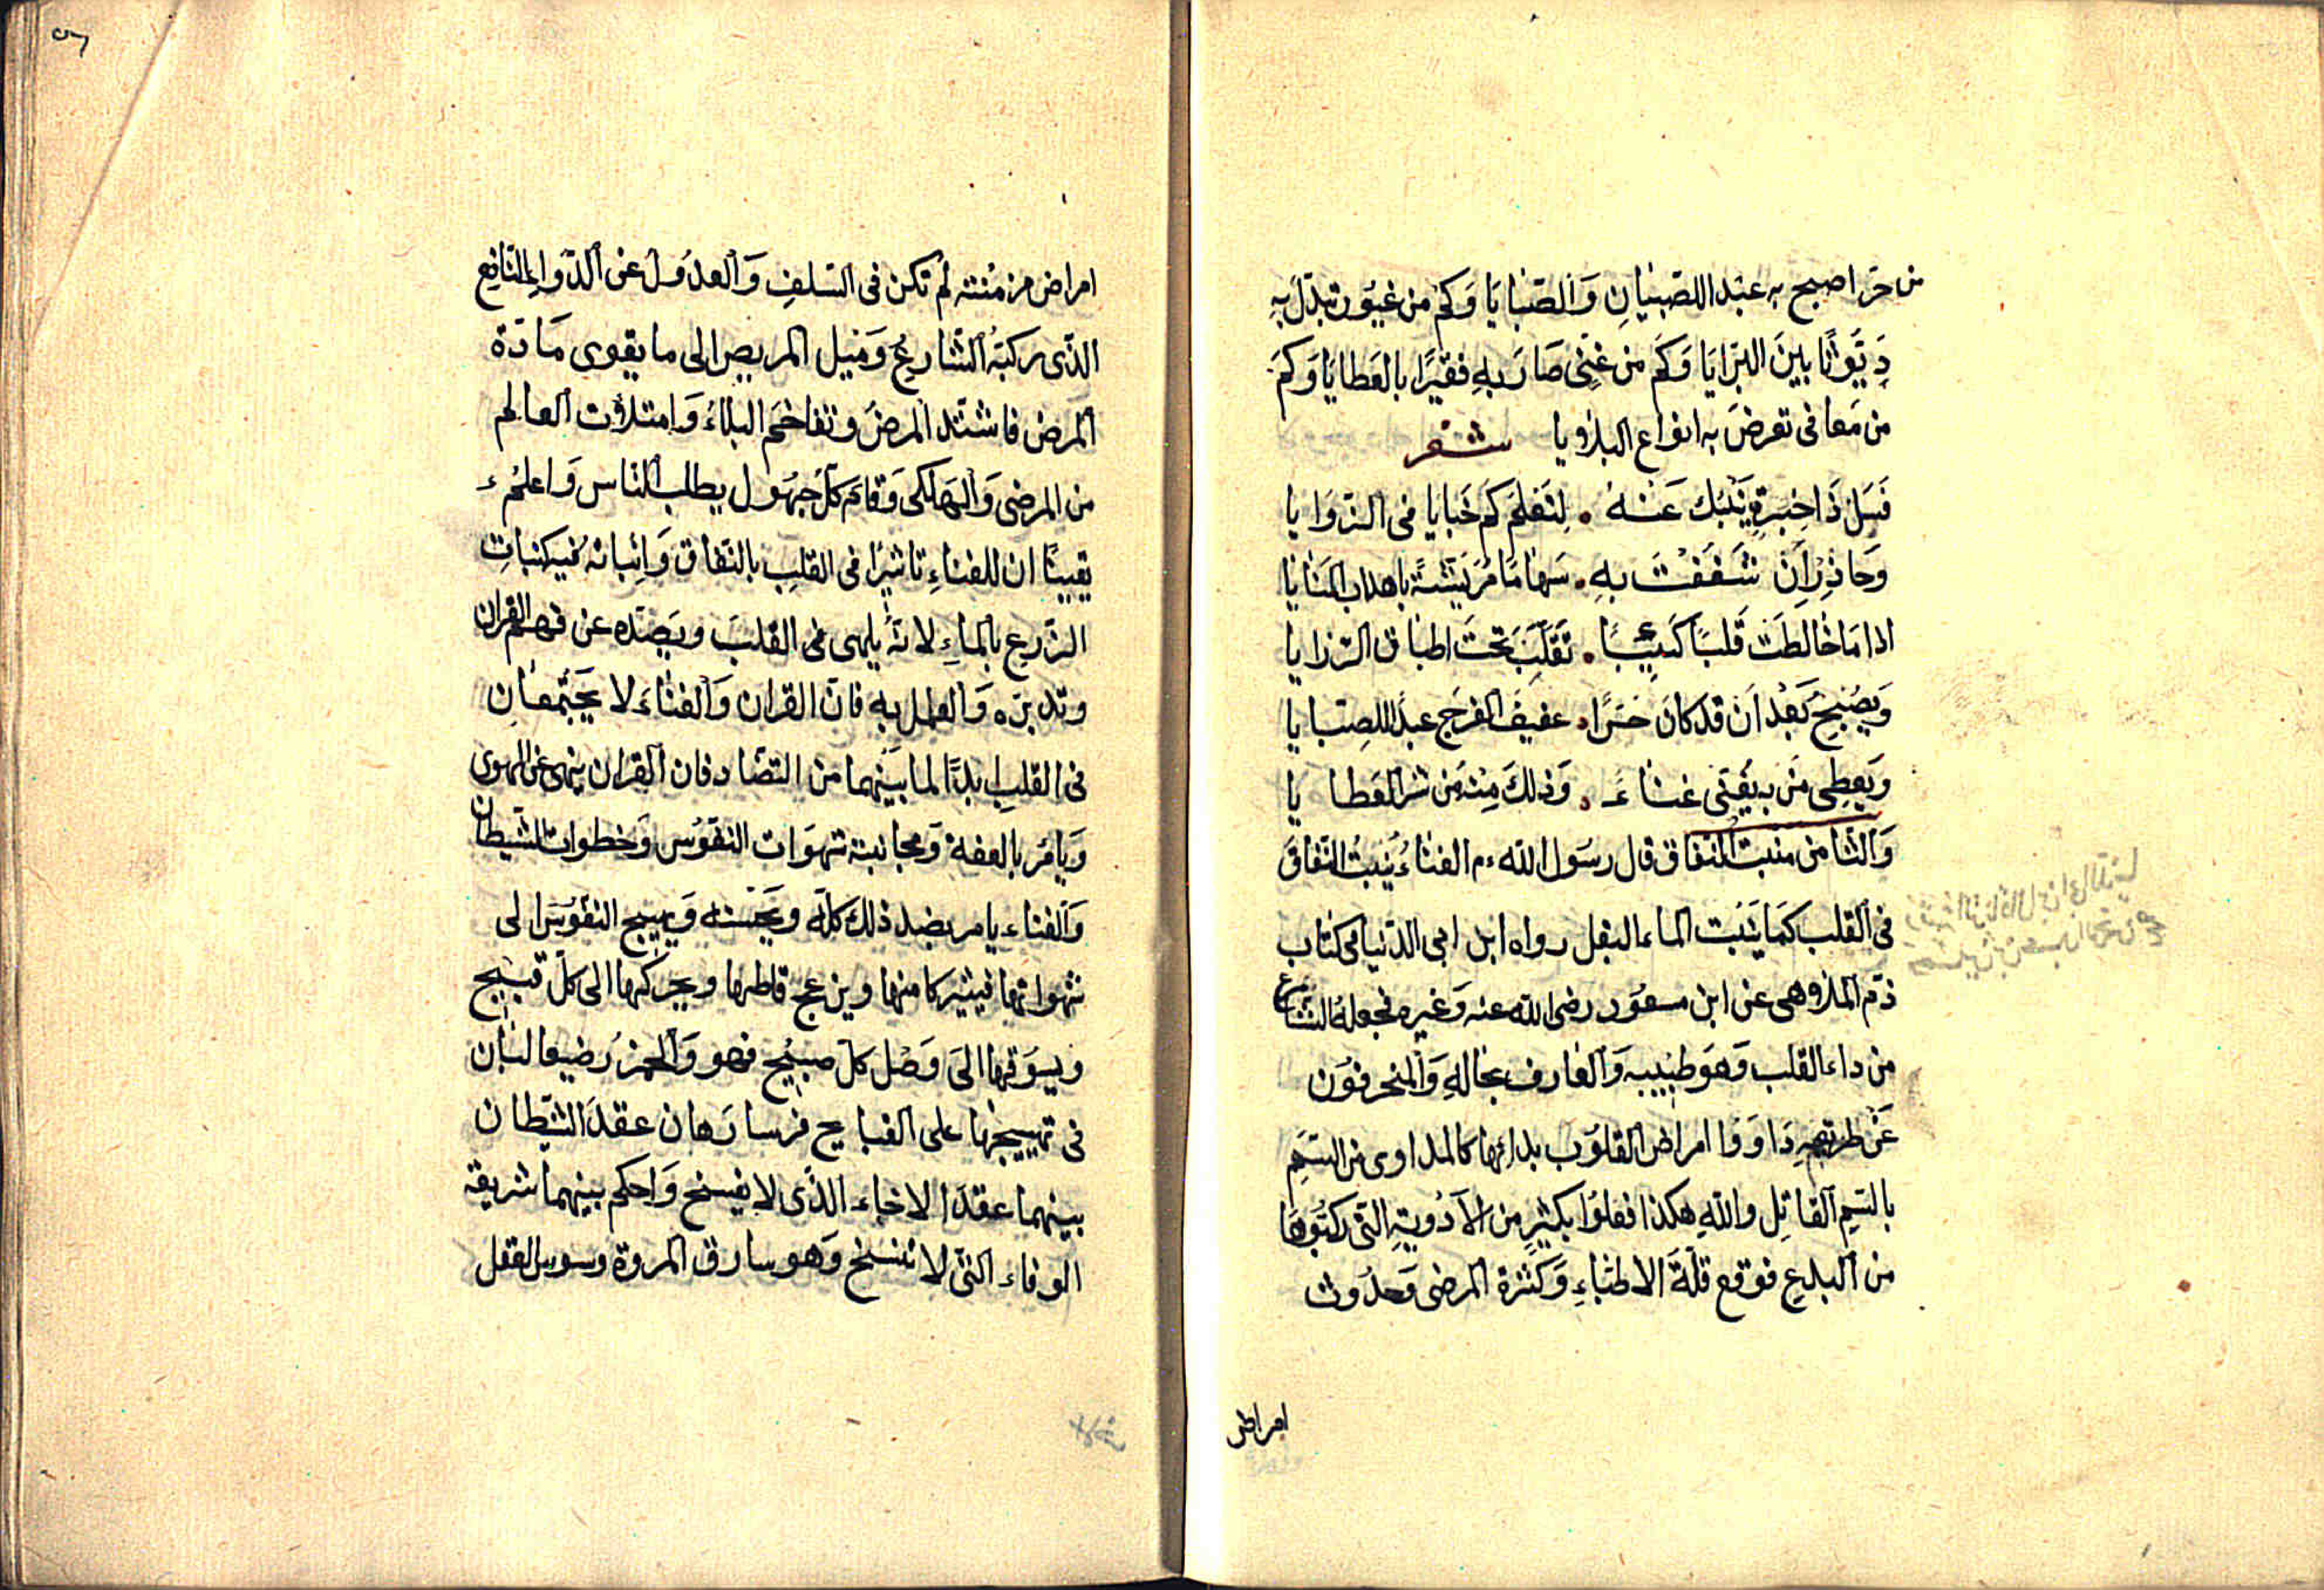 من حر اصبح به عبدا للصبيان والصبايا وكم من غيور تبدل به
ديوثا بين البرايا وكم من غنى صار به فقيرا بالعطايا وكم
من معافى تعرض به انواع البلاويا شعر
فسل ذا خبرة ينبئك عنه . لتعلم كم خبايا فى الزوايا
وحاذر ان شغفت به . سهاما مريشة باهداب المنايا
اذا ما خالطت قلبا كئيبا . تقلب تحت اطباق الرزايا
ويصبح بعد ان قد كان حرا . عفيف الفرج عبدا للصبايا
ويعطى من به يغنى غناء . وذلك منه من شر العطايا
والثامن منبت النفاق قال رسول الله عم الغناء ينبت النفاق
فى القلب كما ينبت الماء البقل رواه ابن ابى الدنيا فى كتاب
ذم الملاوهى عن ابن مسعود رضى الله عنه وغيره فجعله الشارع
من داء القلب وهو طبيبه والعارف بحاله والمنحرفون
عن طريقه داووا امراض القلوب بدائها كالمداوى من السم
بالسم القاتل والله هكذا فعلوا بكثير من الادوية التى ركبوها
من البدع فوقع قلة الاطباء وكثرة المرضى وحدوث
امراض
امراض مزمنة لم تكن فى السلف والعدول عن الدواء النافع
الذى ركبه الشارع وميل المريض الى ما يقوى مادة
المرض فاشتد المرض وتفاخم البلاء وامتلات العالم
من المرضى والهلكى وقام كل جهول يطلب الناس واعلم
يقينا ان للغناء تاثيرا فى القلب بالنفاق وانباته فيه كنبات
الزرع بالماء لانه يلهى فى القلب ويصده عن فهم القران
وتدبره والعمل به فان القران والغناء لا يجتمعان
فى القلب ابدا لما بينهما من التضاد فان القران ينهى عن الهوى
ويامر بالعفة ومجانبة شهوات النفوس وخطوات الشيطان
والغناء يامر بضد ذلك كله ويحسنه ويهيج النفوس الى
شهواتها فيثير كامنها ويزعج قاطنها ويحركها الى كل قبيح
ويسوقها الى وصل كل صبيح فهو والخمر رضيعا لبان
فى تهييجها على القبايح فرسا رهان عقد الشيطان
بينهما عقد الاخاء الذى لا يفسخ واحكم بينهما شريعة
الوفاء التى لا تنسخ وهو سارق المروة وسوس العقل